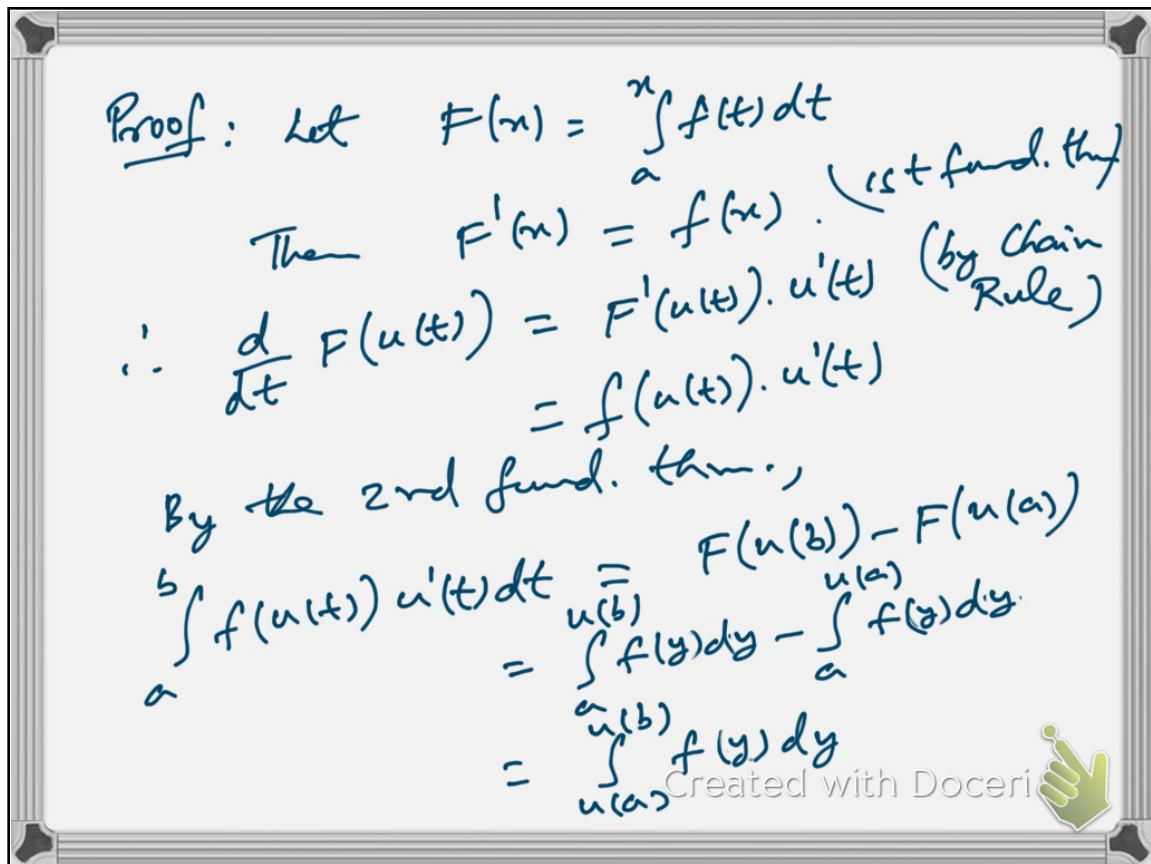 Proof: Let F(x) = ∫_a^x f(t) dt
Then F'(x) = f(x). (1st fund. thm)
∴ d/dt F(u(t)) = F'(u(t)). u'(t) (by Chain Rule)
= f(u(t)). u'(t)
By the 2nd fund. thm.,
∫_a^b f(u(t)) u'(t) dt = F(u(b)) - F(u(a))
= ∫_a^{u(b)} f(y) dy - ∫_a^{u(a)} f(y) dy.
= ∫_{u(a)}^{u(b)} f(y) dy
Created with Doceri